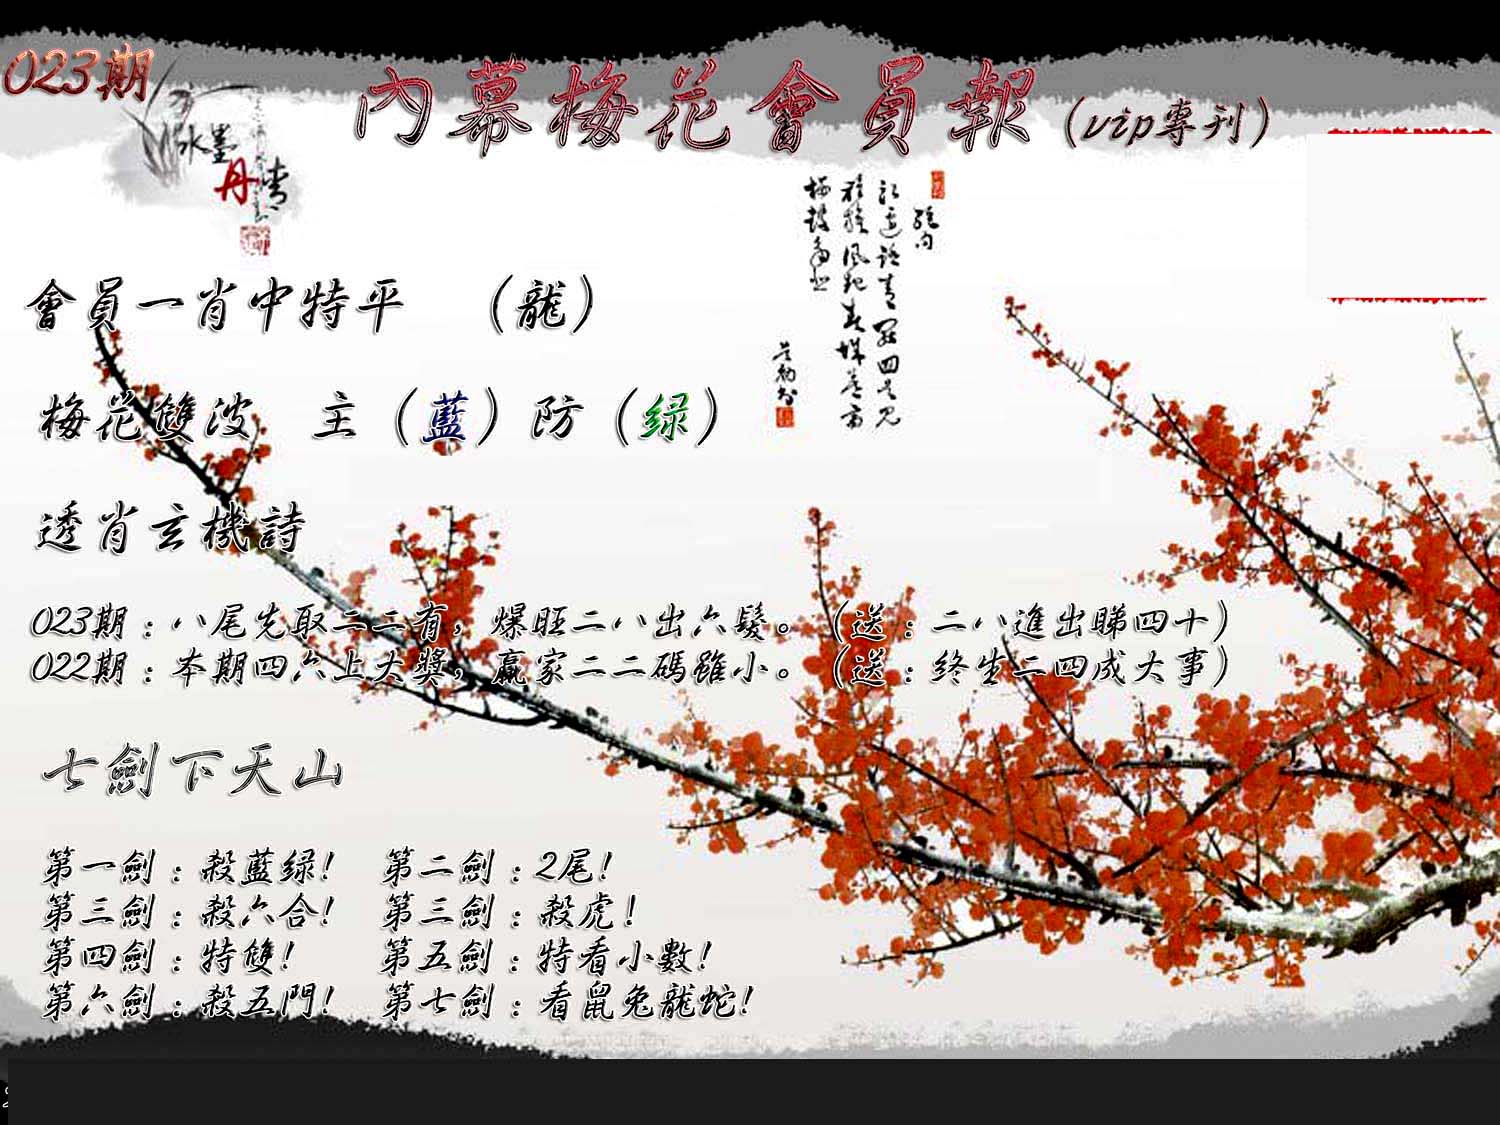 023期
內幕梅花會員報(vip專刊)
水墨
丹青
絕句
會員一肖中特平 (龍)
梅花雙波 主(藍)防(绿)
透肖玄機詩
023期:八尾先取二二有,爆旺二八出六髮。(送:二八進出睇四十)
022期:本期四六上大獎,贏家二二碼雖小。(送:终生二四成大事)
七劍下天山
第一劍:殺藍绿! 第二劍:2尾!
第三劍:殺六合! 第三劍:殺虎!
第四劍:特雙! 第五劍:特看小數!
第六劍:殺五門! 第七劍:看鼠兔龍蛇!